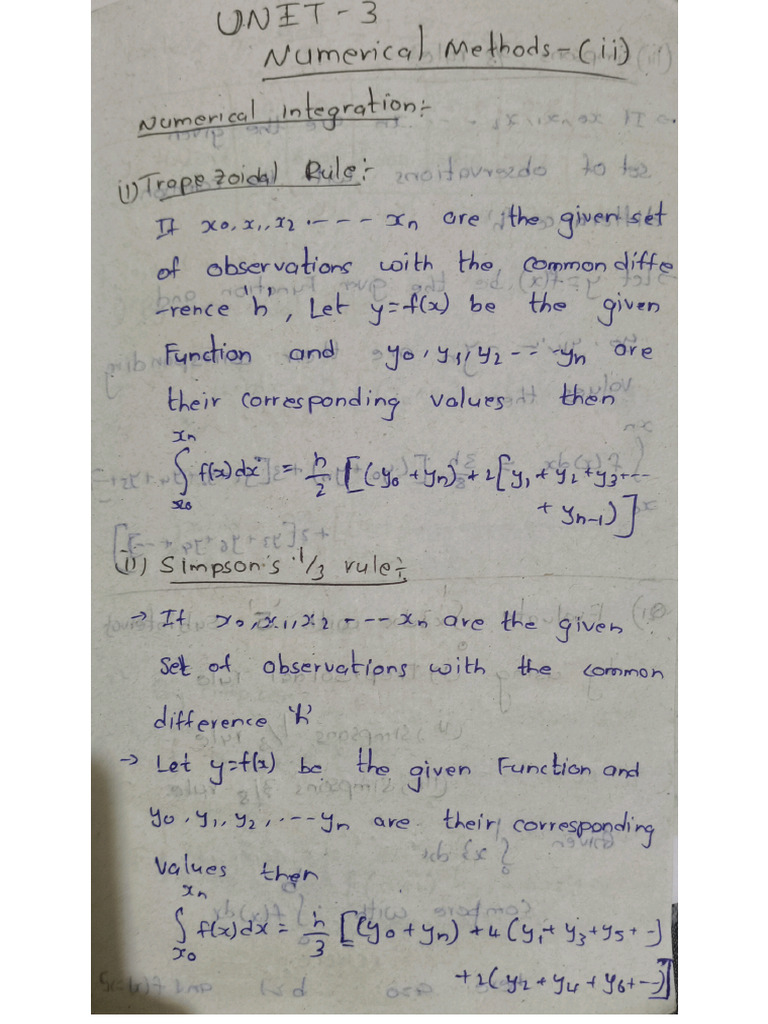 UNIT - 3
Numerical Methods - (ii)
Numerical Integration:-
(i) Trapezoidal Rule:-
If x₀, x₁, x₂ ---- xₙ are the given set
of observations with the common diffe
-rence 'h', Let y=f(x) be the given
Function and y₀, y₁, y₂ --- yₙ are
their corresponding values then
∫ₓ₀ˣⁿ f(x)dx = h/2 [(y₀ + yₙ) + 2[y₁ + y₂ + y₃ + ---
+ yₙ₋₁)]
(ii) Simpson's 1/3 rule:-
→ If x₀, x₁, x₂ - -- xₙ are the given
set of observations with the common
difference 'h'
→ Let y=f(x) be the given Function and
y₀, y₁, y₂, --- yₙ are their corresponding
values then
∫ₓ₀ˣⁿ f(x)dx = h/3 [(y₀ + yₙ) + 4(y₁ + y₃ + y₅ + --)
+ 2(y₂ + y₄ + y₆ + ---)]